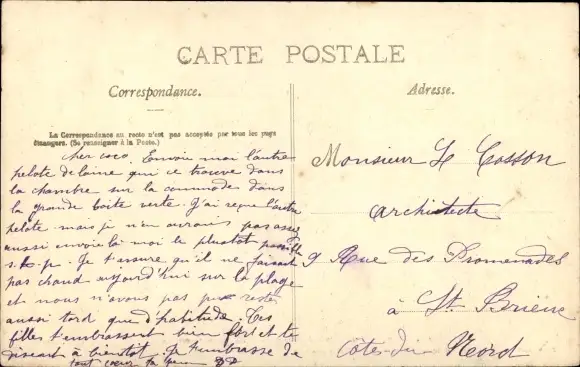 CARTE POSTALE
Correspondance.
Adresse.
La Correspondance au recto n'est pas acceptée par tous les pays
étrangers. (Se renseigner à la Poste.)
Cher coco. Envoie moi l'autre
pelote de laine qui ce trouve dans
la chambre sur la commode dans
la grande boite verte. J'ai reçue l'autre
pelote mais je n'en aurais pas assez
aussi envoie la moi le plustot possible
s.t.p. Je t'assure qu'il ne faisait
pas chaud aujourd'hui sur la plage
et nous n'avons pas resté
aussi tard que d'habitude. Tes
filles t'embrassent bien fort et te
disent à bientot. Je t'embrasse de
tout coeur ta
Monsieur Le Cosson
architecte
9 Rue des Promenades
à St. Brieuc
Côtes-du Nord